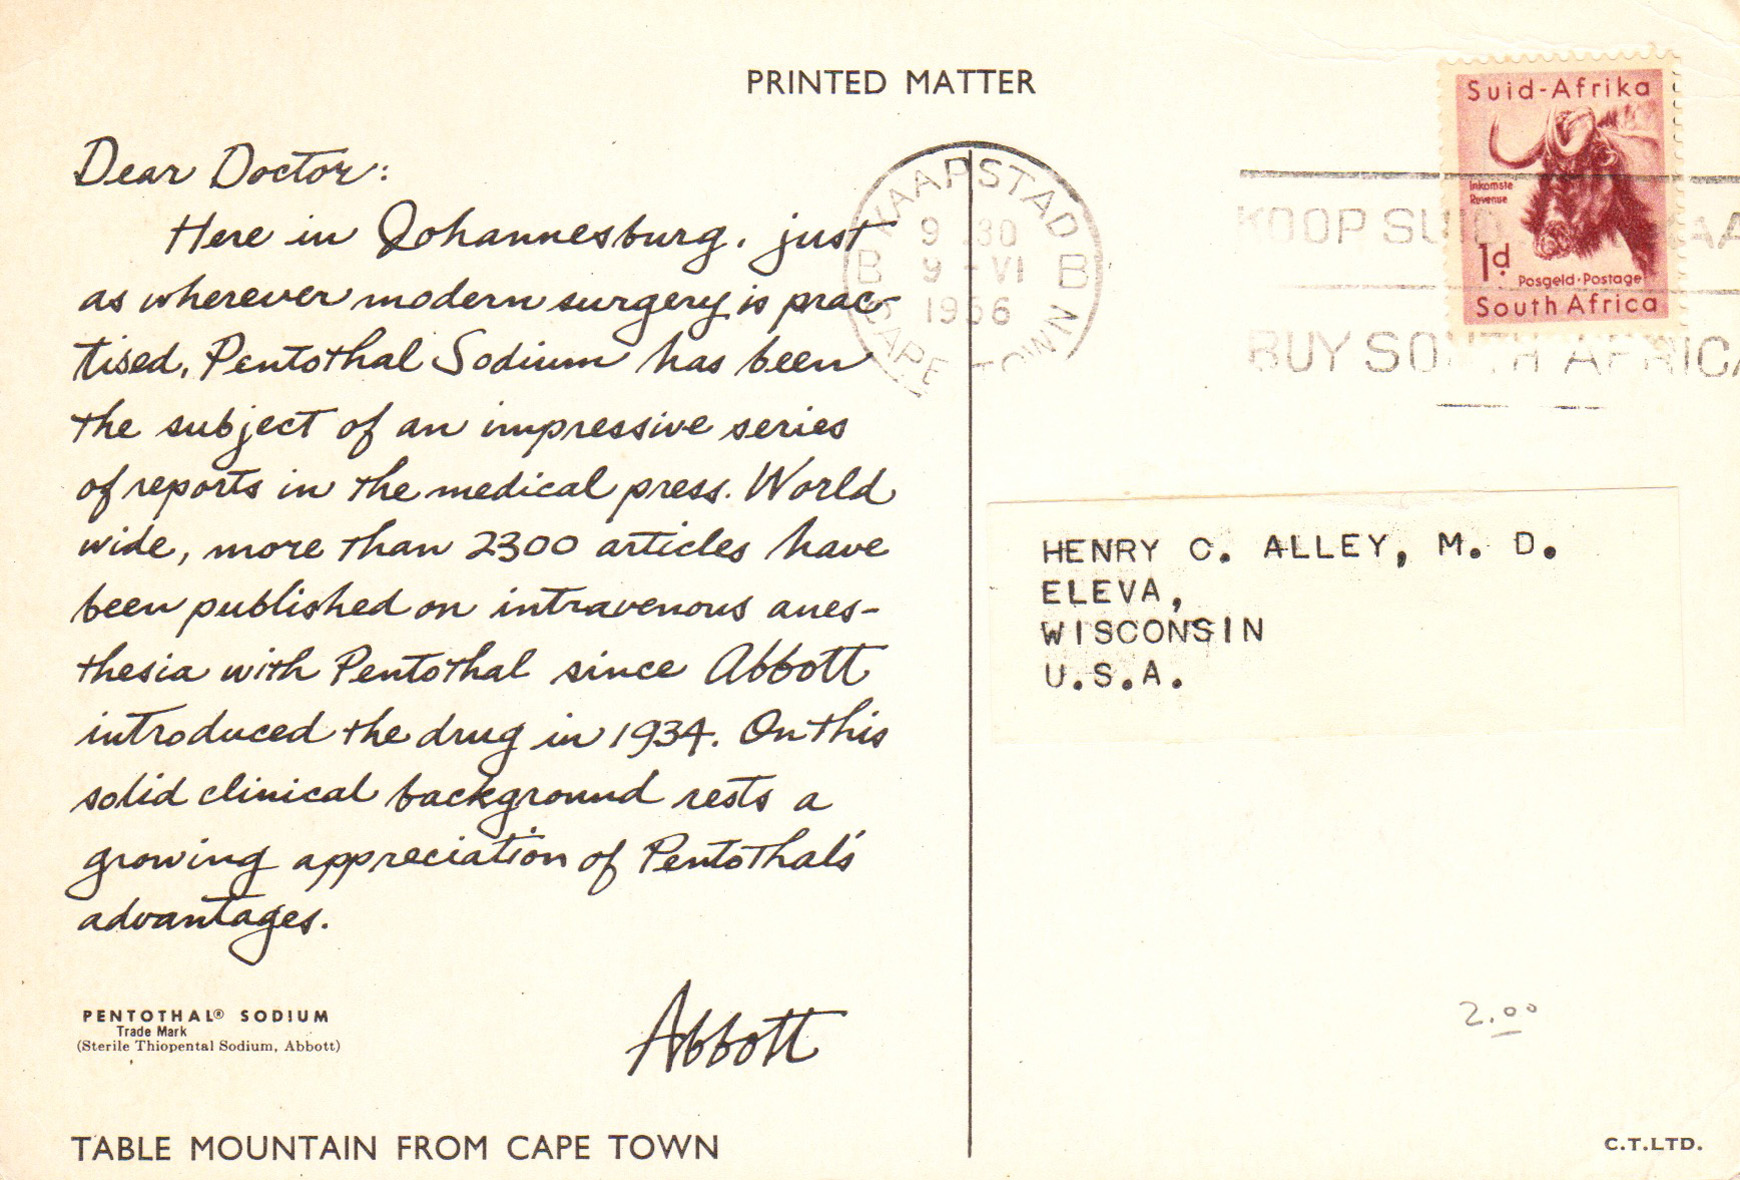 PRINTED MATTER
Dear Doctor:
Here in Johannesburg, just
as wherever modern surgery is prac-
tised, Pentothal Sodium has been
the subject of an impressive series
of reports in the medical press. World
wide, more than 2300 articles have
been published on intravenous anes-
thesia with Pentothal since Abbott
introduced the drug in 1934. On this
solid clinical background rests a
growing appreciation of Pentothal's
advantages.
Abbott
PENTOTHAL® SODIUM
Trade Mark
(Sterile Thiopental Sodium, Abbott)
TABLE MOUNTAIN FROM CAPE TOWN
KAAPSTAD
B 9 30 B
9 - VI
1956
CAPE TOWN
KOOP SUID
BUY SOUTH AFRICA
Suid-Afrika
Inkomste
Revenue
1d
Posgeld·Postage
South Africa
HENRY C. ALLEY, M. D.
ELEVA,
WISCONSIN
U.S.A.
2.00
C.T.LTD.